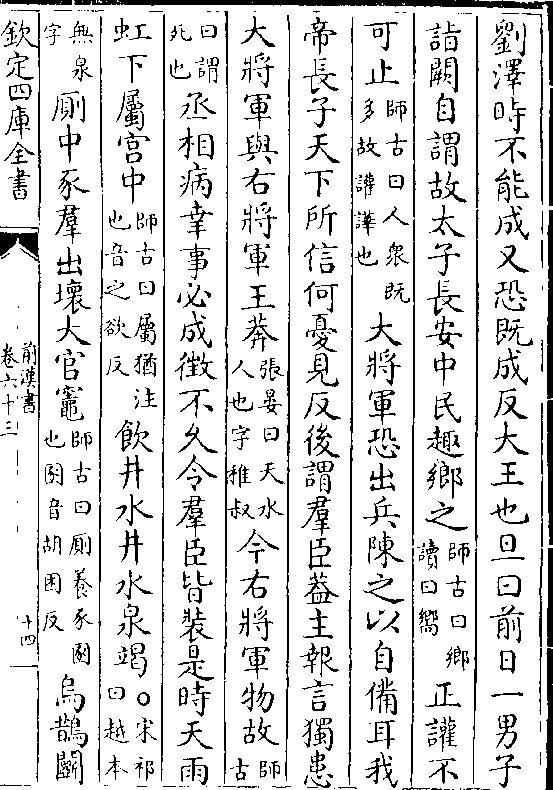 劉澤時不能成又恐既成反大王也旦曰前日一男子
詣闕自謂故太子長安中民趣鄉之師古曰鄉讀曰嚮正讙不
可止師古曰人衆既多故讙譁也大將軍恐出兵陳之以自備耳我
帝長子天下所信何憂見反後謂羣臣葢主報言獨患
大將軍與右將軍王莽張晏曰天水人也字稚叔今右將軍物故師古
曰謂死也丞相病幸事必成徵不久令羣臣皆裝是時天雨
虹下屬宫中師古曰屬猶注也音之欲反飲井水井水泉竭○宋祁曰越本
無泉字厠中豕羣出壞大官竈師古曰厠養豕圂也圂音胡困反烏鵲鬭
欽定四庫全書
前漢書
卷六十三
十四